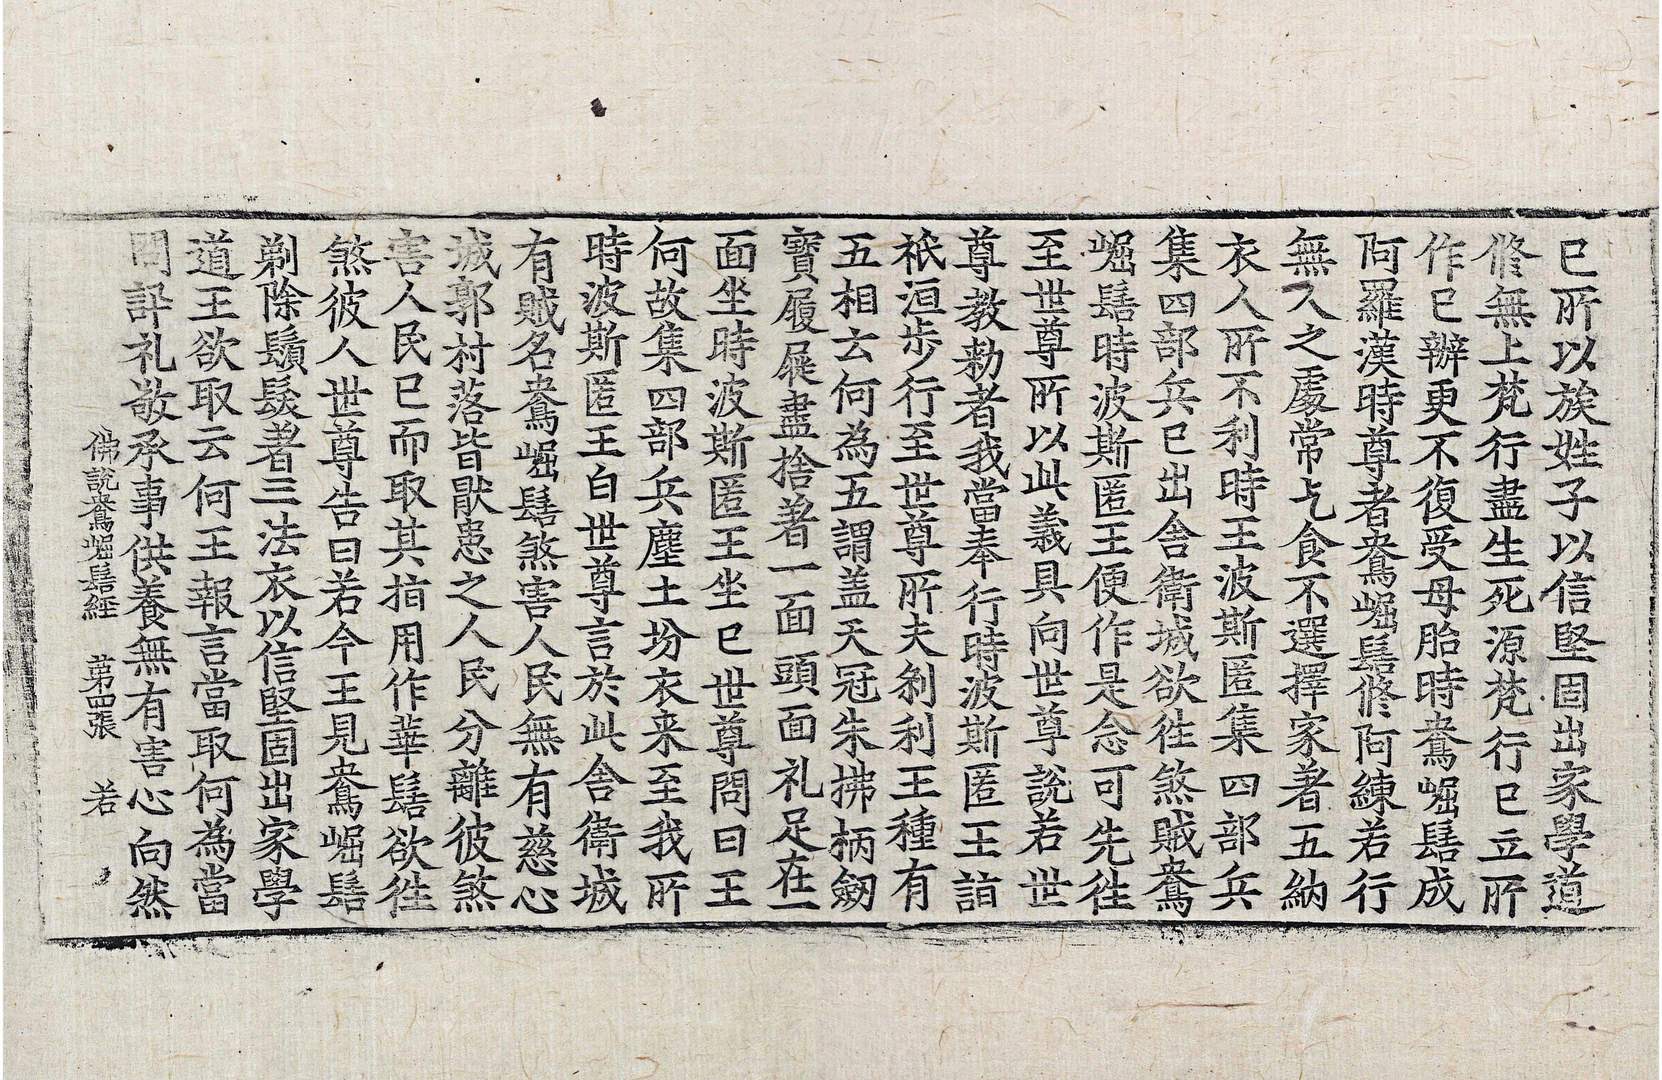 已所以族姓子以信堅固出家學道
修無上梵行盡生死源梵行已立所
作已辦更不復受母胎時鴦崛髻成
阿羅漢時尊者鴦崛髻修阿練若行
無人之處常乞食不選擇家著五納
衣人所不利時王波斯匿集四部兵
集四部兵已出舍衛城欲往煞賊鴦
崛髻時波斯匿王便作是念可先往
至世尊所以此義具向世尊說若世
尊教勑者我當奉行時波斯匿王詣
祇洹步行至世尊所夫刹利王種有
五相云何為五謂盖天冠朱拂柄劒
寶履屣盡捨著一面頭面礼足在一
面坐時波斯匿王坐已世尊問曰王
何故集四部兵塵土坌衣来至我所
時波斯匿王白世尊言於此舍衛城
有賊名鴦崛髻煞害人民無有慈心
城郭村落皆猒患之人民分離彼煞
害人民已而取其指用作華髻欲往
煞彼人世尊告曰若今王見鴦崛髻
剃除鬚髮著三法衣以信堅固出家學
道王欲取云何王報言當取何為當
問訊礼敬承事供養無有害心向然
佛說鴦崛髻經 第四張 若